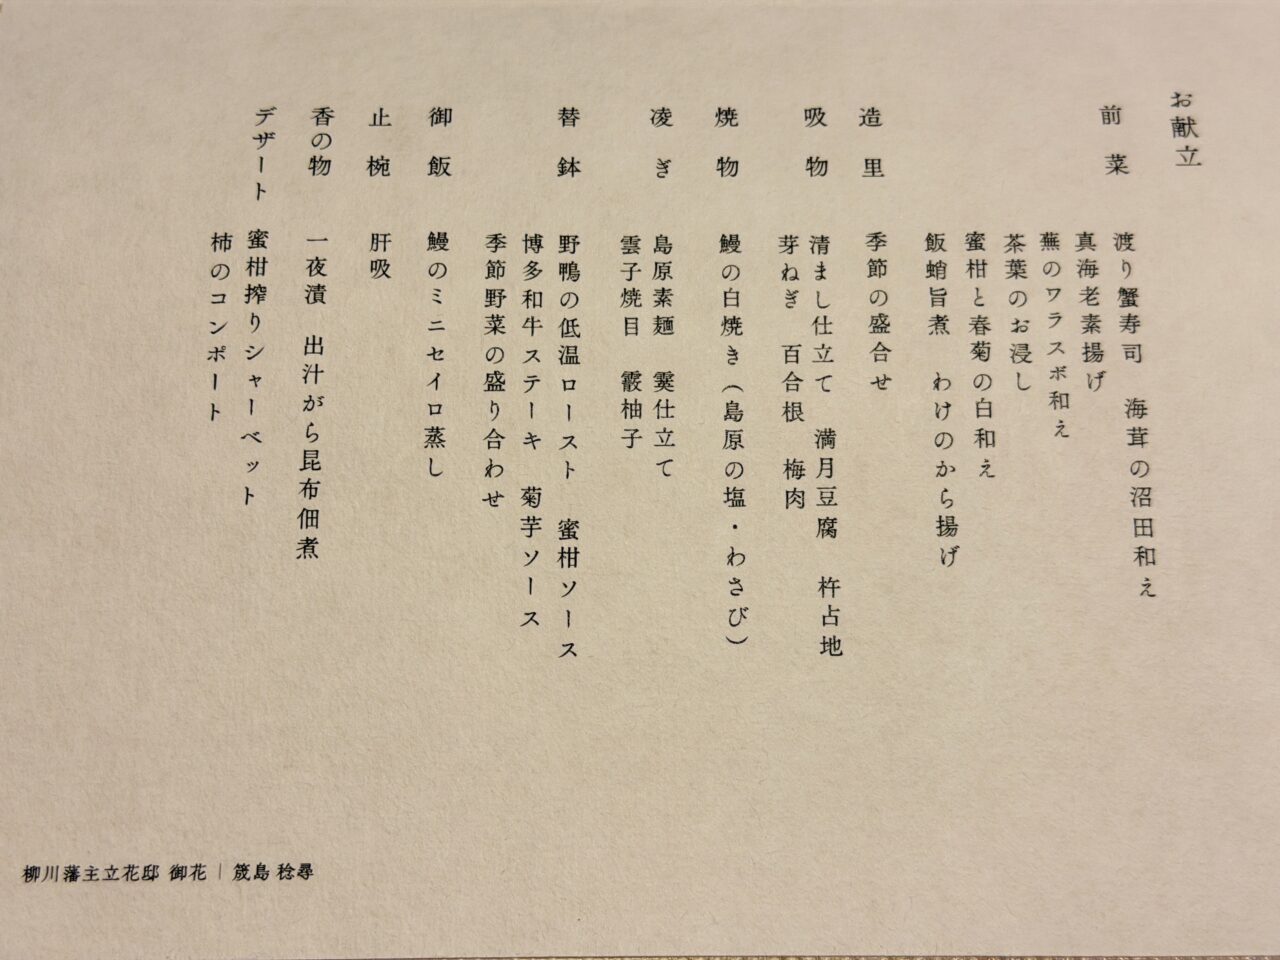 お献立
前菜 渡り蟹寿司 海茸の沼田和え
真海老素揚げ
蕪のワラスボ和え
茶葉のお浸し
蜜柑と春菊の白和え
飯蛸旨煮 わけのから揚げ
造里 季節の盛合せ
吸物 清まし仕立て 満月豆腐 杵占地
芽ねぎ 百合根 梅肉
焼物 鰻の白焼き(島原の塩・わさび)
凌ぎ 島原素麺 霙仕立て
雲子焼目 霰柚子
替鉢 野鴨の低温ロースト 蜜柑ソース
博多和牛ステーキ 菊芋ソース
季節野菜の盛り合わせ
御飯 鰻のミニセイロ蒸し
止椀 肝吸
香の物 一夜漬 出汁がら昆布佃煮
デザート 蜜柑搾りシャーベット
柿のコンポート
柳川藩主立花邸 御花 | 筬島 稔尋